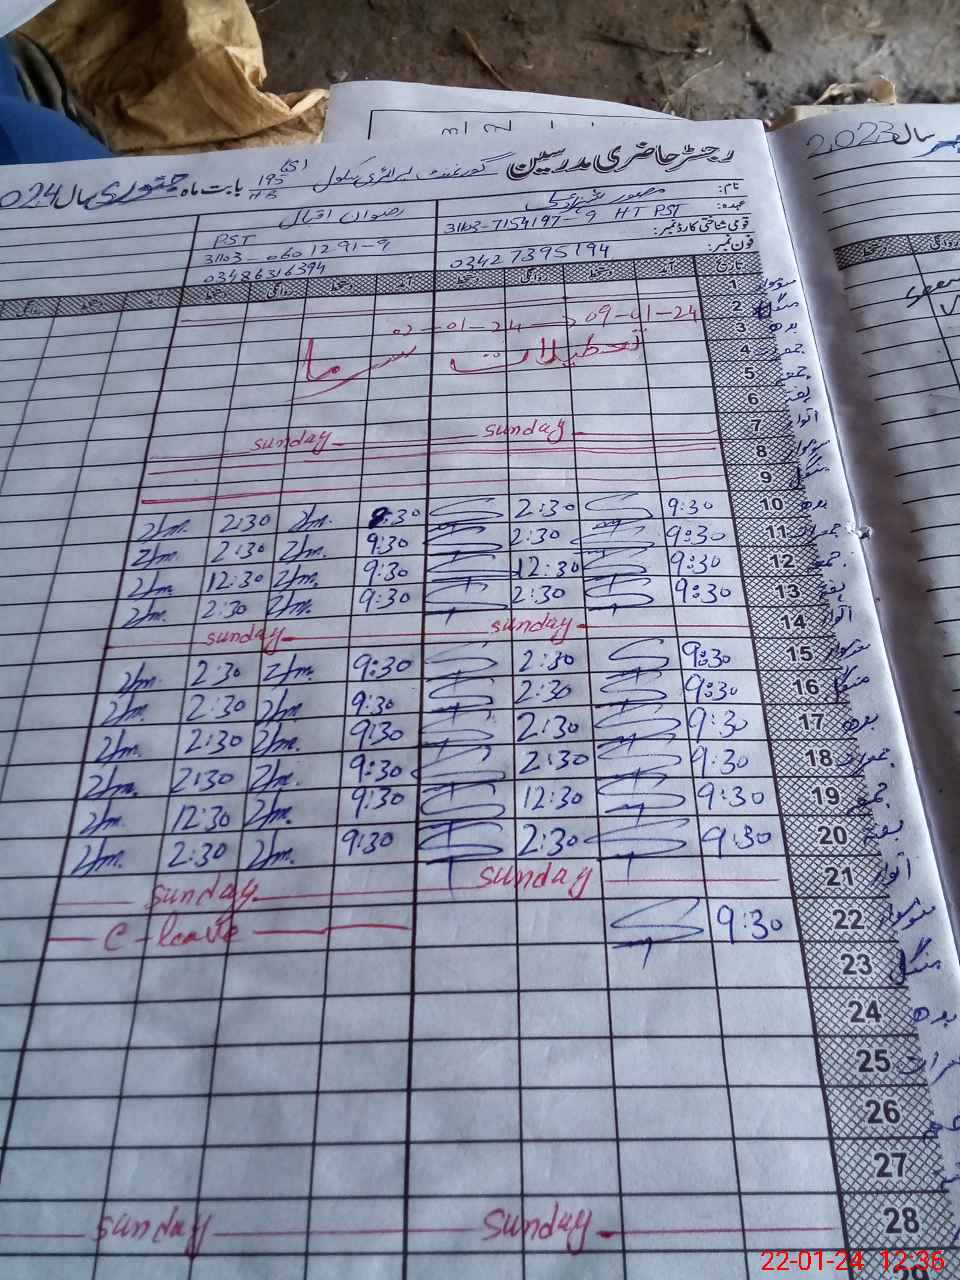 رجسٹر حاضری مدرسین گورنمنٹ پرائمری سکول 195/HB (S) بابت ماہ جنوری سال 024
سال 2023
نام:
رضوان اقبال
عہدہ: HT PST
PST
قومی شناختی کارڈ نمبر: 31103-7154197-9
31103-060 1291-9
فون نمبر: 03427395194
03486316394
تاریخ آمد دستخط روانگی دستخط آمد دستخط روانگی دستخط آمد دستخط روانگی
1 سوموار
2 منگل
02-01-24 → 09-01-24
3 بدھ
تعطیلات سرما
4 جمعرات
5 جمعہ
6 ہفتہ
7 اتوار sunday sunday
8 سوموار
9 منگل
10 بدھ 9:30 2:30 9:30 2:30
11 جمعرات 9:30 2:30 9:30 2:30
12 جمعہ 9:30 12:30 9:30 12:30
13 ہفتہ 9:30 2:30 9:30 2:30
14 اتوار sunday sunday
15 سوموار 9:30 2:30 9:30 2:30
16 منگل 9:30 2:30 9:30 2:30
17 بدھ 9:30 2:30 9:30 2:30
18 جمعرات 9:30 2:30 9:30 2:30
19 جمعہ 9:30 12:30 9:30 12:30
20 ہفتہ 9:30 2:30 9:30 2:30
21 اتوار sunday sunday
22 سوموار 9:30 C-leave
23 منگل
24 بدھ
25
26
27
28 sunday sunday
22-01-24 12:36